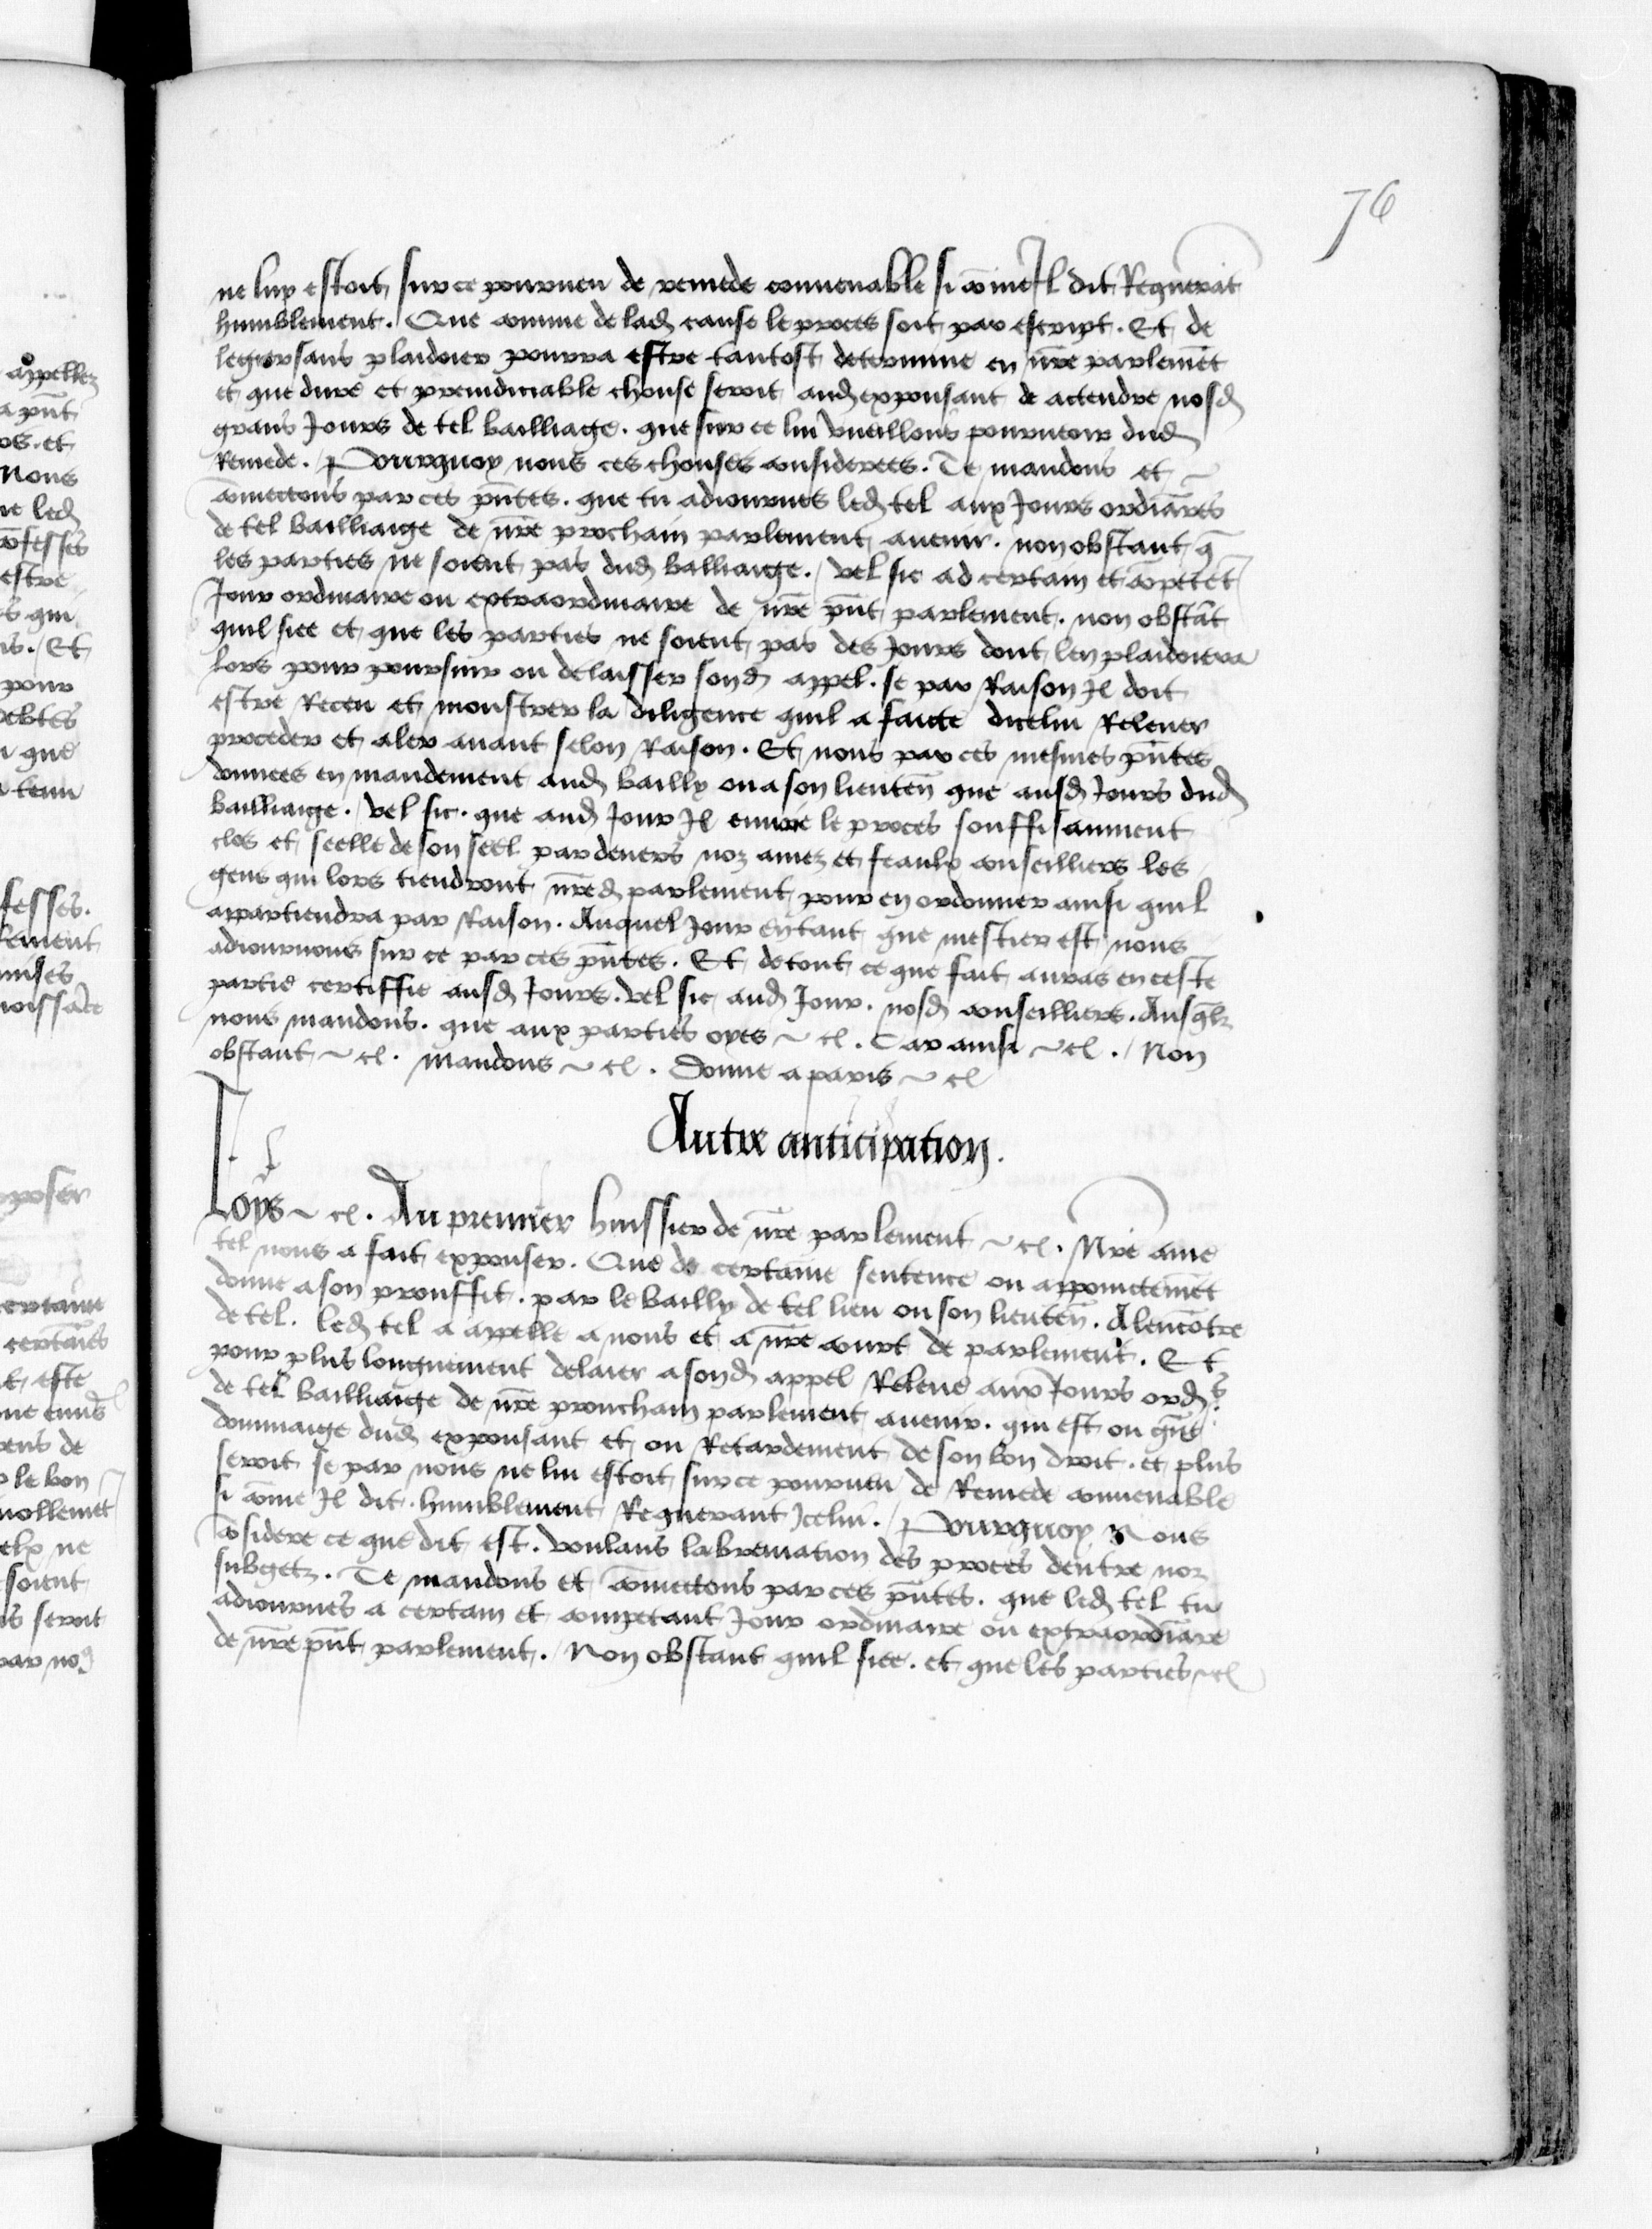 76
ne luy estoit sur ce pourueu de remede conuenable si cōme Il dit Requerāt
humblement. Que comme de lad cause le proces soit par escript. Et de
legier sans plaidoier pourra estre tantost determine en nr̄e parlemēt
et que dure et preiudiciable chouse seroit aud exposant de actendre nosd
grans Jours de tel bailliage. que sur ce lui vueillons pourueoir dud
Remede. Pourquoy nous ces chouses considerees. Te mandons et
cōmectons par ces pn̄tes. que tu adiournes led tel aux Jours ordiāres
de tel bailliaige de nr̄e prochain parlement auenir. non obstant q̄
les parties ne soient pas dud balliaige. vel sic ad certain et cōpetēt
Jour ordinaire ou extraordinaire de nr̄e pn̄t parlement. non obstāt
quil siee et que les parties ne soient pas des Jours dont len plaidoiera
lors pour poursuir ou delaisser sond appel. se par Raison Il doit
estre Receu et monstrer la diligence quil a faicte dicelui Releuer
proceder et aler auant selon Raison. Et nous par ces mesmes pn̄tes
donnees en mandement aud bailly ou a son lieuten̄ que ausd Jours dud
bailliaige. vel sic. que aud Jour Il enuoie le proces souffisanment
clos et seelle de son seel par deuers noz amez et feaulx conseilliers les
gens qui lors tiendront nr̄ed parlement pour en ordonner ainsi quil
appartiendra par Raison. Auquel Jour en tant que mestier est nous
adiournons sur ce par ces pn̄tes. Et de tout ce que fait auras en ceste
partie certiffie ausd Jours. vel sic aud Jour. nosd conseilliers. Ausq̄lz
nous mandons. que aux parties oyes ~ cl. Car ainsi ~ cl. Non
obstant ~ cl. mandons ~ cl. Donne a paris ~ cl
Autre anticipation.
Loys ~ cl. Au premier huissier de nr̄e parlement ~ cl. Nr̄e ame
tel nous a fait exposer. Que de certaine sentence ou appoinctemēt
donne a son prouffit. par le bailly de tel lieu ou son lieuten̄. Alencōtre
de tel. led tel a appelle a nous et a nr̄e court de parlement. Et
pour plus longuement delaier a sond appel Releue aux Jours ords
de tel bailliaige de nr̄e prouchain parlement auenir. qui est ou gr̄ne
dommaige dud exposant et ou Retardement de son bon droit. et plus
seroit se par nous ne lui estoit sur ce pourueu de Remede conuenable
si cōme Il dit. humblement Requerant Icelui. Pourquoy Nous
cōsidere ce que dit est. voulans labreuiation des proces dentre noz
subgetz. Te mandons et cōmectons par ces pn̄tes. que led tel tu
adiournes a certain et competant Jour ordinaire ou extraordiāre
de nr̄e pn̄t parlement. Non obstant quil siee. et que les parties ~cl